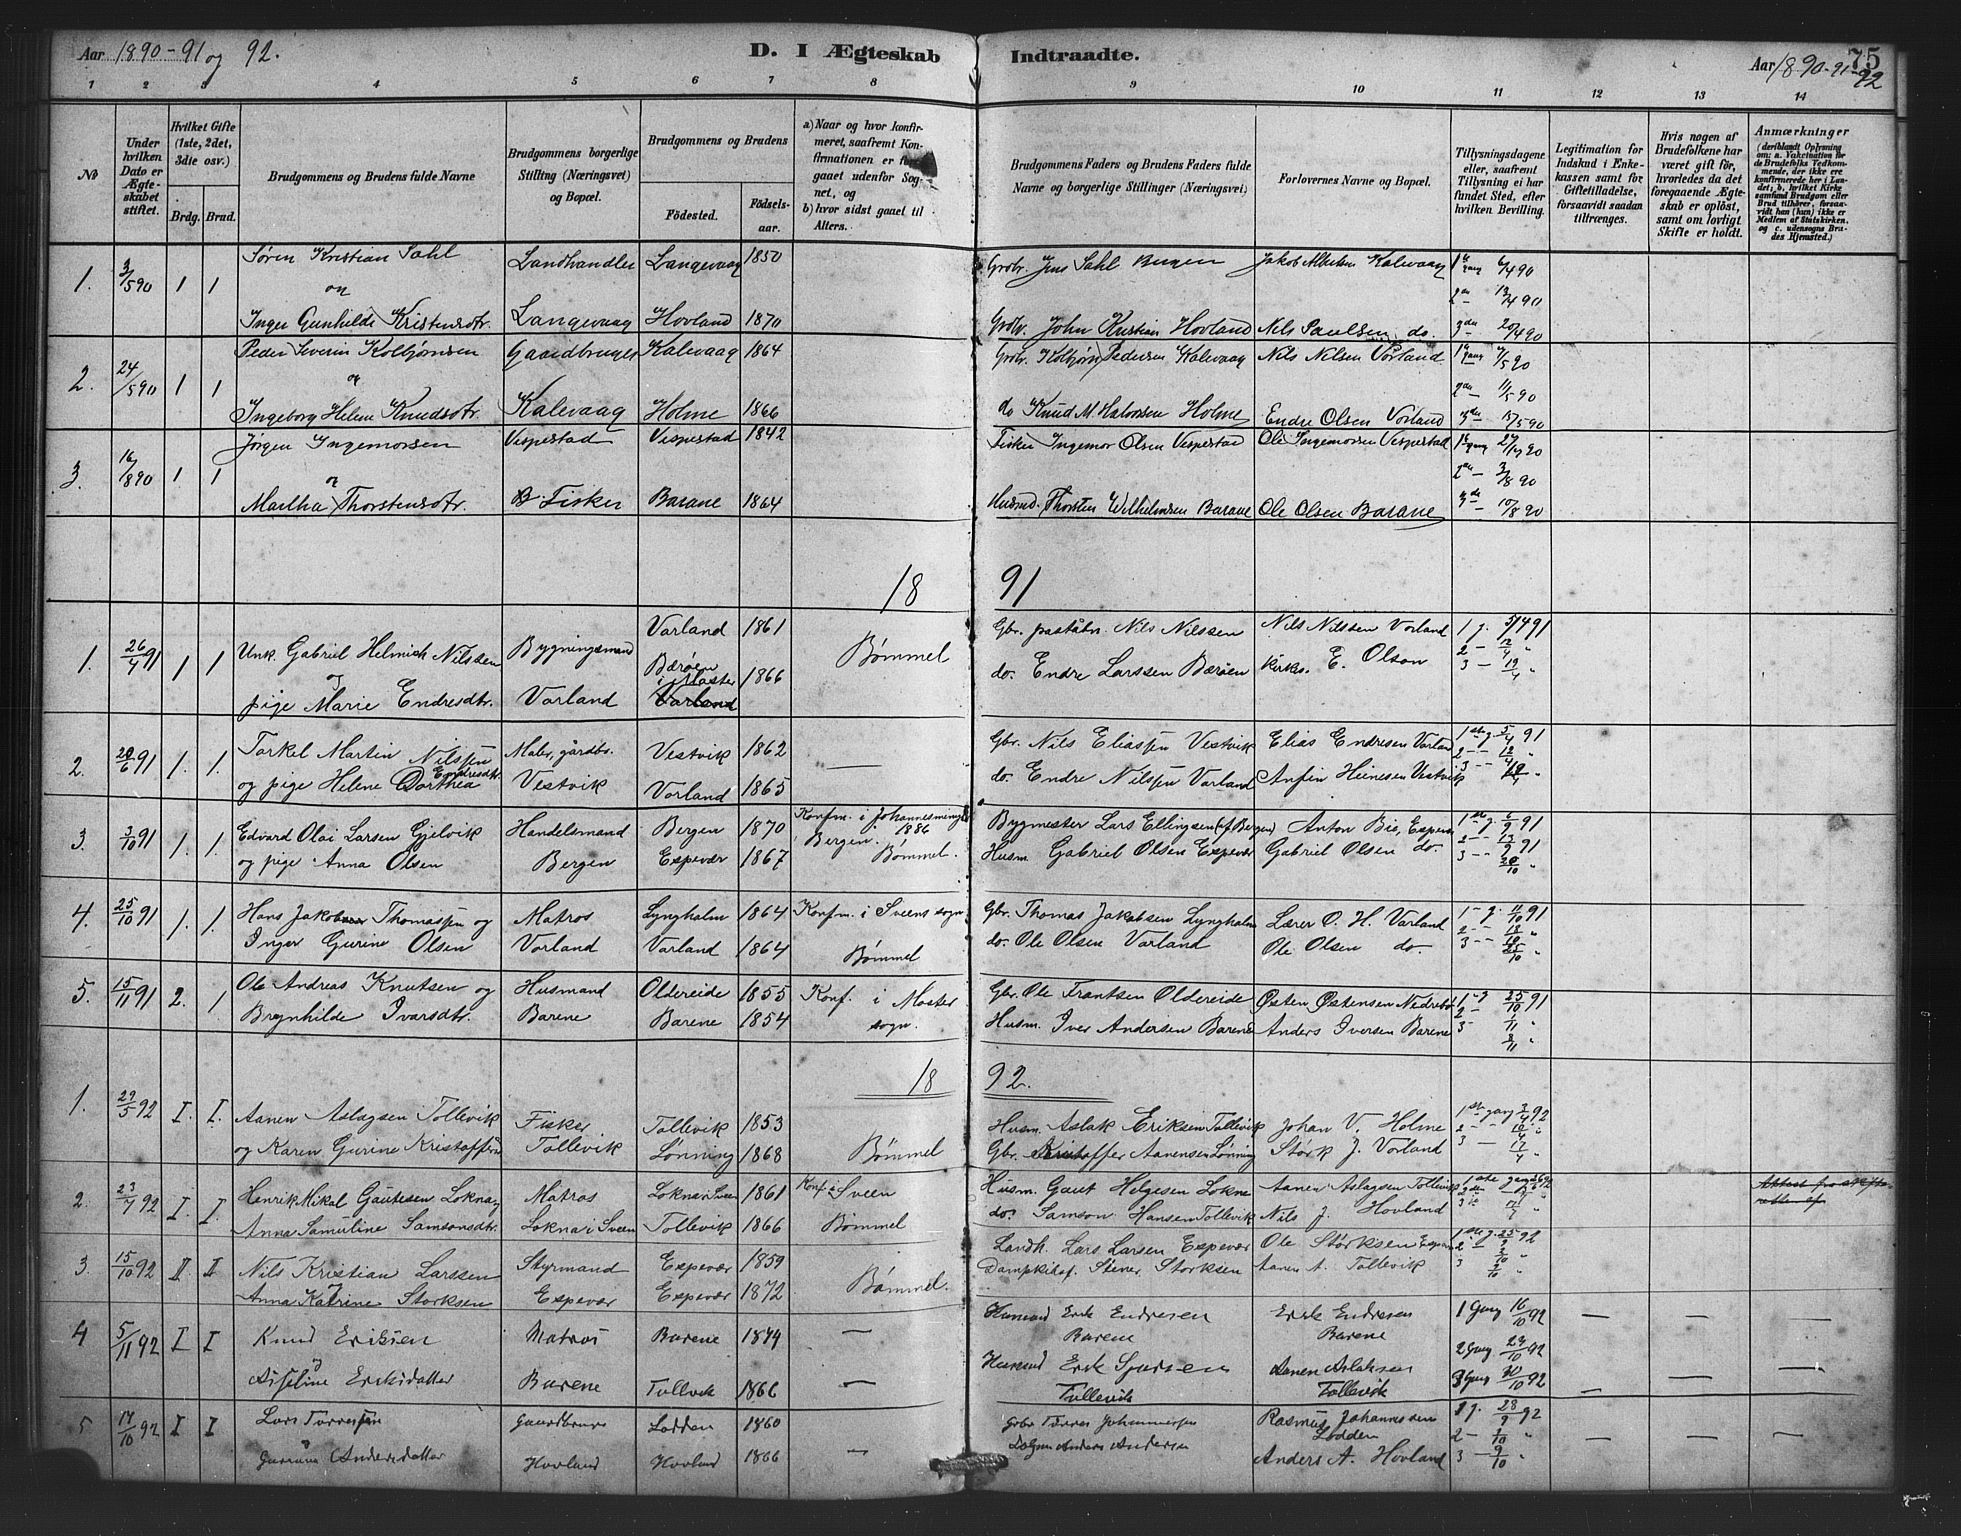 Aar 1890-91 og 92.
D. I Ægteskab
Indtraadte.
75
Aar 1890-91-92
1 2 3 4 5 6 7 8 9 10 11 12 13 14
No
Under hvilken Dato er Ægteskabet stiftet.
Hvilket Gifte (1ste, 2det, 3die osv.)
Brdg. Brud.
Brudgommens og Brudens fulde Navne
Brudgommens borgerlige Stilling (Næringsvei) og Bopæl.
Brudgommens og Brudens
Födested.
Födselsaar.
a) Naar og hvor konfirmeret, saafremt Konfirmationen er foregaaet udenfor Sognet, og
b) hvor sidst gaaet til Alters.
Brudgommens Faders og Brudens Faders fulde Navne og borgerlige Stillinger (Næringsvei)
Forlovernes Navne og Bopæl.
Tillysningsdagene eller, saafremt Tillysning ei har fundet Sted, efter hvilken Bevilling.
Legitimation for Indskud i Enkekassen samt for Giftetilladelse, forsaavidt saadan tiltrænges.
Hvis nogen af Brudefolkene har været gift för, hvorledes da det foregaaende Ægteskab er oplöst, samt om lovligt Skifte er holdt.
Anmærkninger (deriblandt Oplysning om: a. Vakcination for de Brudefolks Vedkommende, der ikke ere konfirmerede her i Landet; b. hvilket Kirkesamfund Brudgom eller Brud tilhörer, forsaavidt han (hun) ikke er Medlem af Statskirken, og c. udensogns Brudes Hjemsted.)
1. 3/5 90 1 1 Søren Kristian Sahl Landhandler Langevaag 1850 Grdbr. Jens Sahl Bergen Jakob Albertsen Kalevaag 1ste gang 6/4 90
og 2den — 13/4 90
Inger Gunhilde Kristensdtr. Langevaag Hovland 1870 Grdbr. John Kristian Hovland Nils Paulsen do. 3die — 20/4 90
2. 24/5 90 1 1 Peder Severin Kolbjørnsen Gaardbruger Kalevaag 1864 Grdbr. Kolbjørn Pedersen Kalevaag Nils Nilsen Vorland 1ste gang 4/5 90
og 2den — 11/5 90
Ingeborg Helene Knudsdtr. Kalevaag Holme 1866 do Knud M. Halvorsen Holme Endre Olsen Vorland 3die — 15/5 90
3. 16/8 90 1 1 Jørgen Ingemorsen Vespestad Vespestad 1842 Fisker Ingemor Olsen Vespestad Ole Ingemorsen Vespestad 1ste gang 27/7 90
og 2den — 3/8 90
Martha Thorstensdtr. Fisker Barane 1864 Husmd. Thorsten Wilhelmsen Barane Ole Olsen Barane 3die — 10/8 90
18 91
1. 26/4 91 1 1 Unk. Gabriel Helmich Nilssen Bygningsmand Varland 1861 Bømmel Gbr. Nils Nilssen Nils Nilssen Vorland 1 g. 5/4 91
og Bærøen i Moster 1866 do. Endre Larssen Bærøen Kirkes. E. Olson 2 — 12/4
pige Marie Endresdtr. Varland Varland 3 — 19/4
2. 28/6 91 1. 1. Torkel Martin Nilssen Maler, gårdbr. Vestvik 1862 — Gbr. Nils Eliassen Vestvik Elias Endresen Varland 1ste g. 5/4 91
og pige Helene Dorthea Endresdtr. Vestvik Vorland 1865 do. Endre Nilssen Varland Anfin Heinesen Vestvik 2 - 12/4 "
3 - 19/4 "
3. 3/10 91 1. 1. Edvard Olai Larsen Gjelvik Handelsmand Bergen 1870 Konfm. i Johannesmenigh. i Bergen 1886 Bygmester Lars Ellingsen (af Bergen) Anton Bis, Espevær 1ste g. 6/9 91
og pige Anna Olsen Bergen Espevær 1867 Bømmel. Husm. Gabriel Olsen Espevær Gabriel Olsen do. 2 - 13/9 91
3 -
4. 25/10 91 1. 1. Hans Jakob Thomassen og Matros Lyngholm 1864 Konfm. i Sveens sogn Gbr. Thomas Jakobsen Lyngholm Lærer O. H. Varland 1 - g. 11/10 91
Inger Gurine Olsen Vorland Varland 1864 Bømmel do. Ole Olsen Varland Ole Olsen do. 2 - 18/10 "
3 - 25/10 "
5. 15/11 91 2. 1. Ole Andreas Knutsen og Husmand Oldereide 1855 Konf. i Moster sogn. Gbr. Ole Frantsen Oldereide Østen Østensen Nedrebø 1 - g 25/10 91
Brynhilde Ivarsdtr. Barene Barene 1854 Husm. Iver Andersen Barene Anders Iversen Barene 2 - 1/11 "
3 - 8/11 "
18 92.
1. 29/5 92 I. I. Aanen Aslagsen Tollevik Fisker Tollevik 1853 Husm. Aslak Eriksen Tollevik Johan V. Holme 1ste gang 3/4 92
og Karen Gurine Kristoffersen Tollevik Lønning 1868 Bømmel Gbr. Kristoffer Aanensen Lønning Størk J. Vorland 2 - 10/4 "
3 - 17/4 "
2. 23/7 92 I. I. Henrik Mikal Gautesen Lokna og Matros Lokna i Sveen 1861 Konf. i Sveen Husm. Gaut Helgesen Lokne Aanen Aslagsen Tollevik 1ste gang
Anna Samuline Samsonsdtr. Lokna i Sveen Tollevik 1866 Bømmel do. Samson Hansen Tollevik Nils J. Hovland
3. 15/10 92 II II Nils Kristian Larssen Styrmand Espevær 1859 Bømmel. Landh. Lars Larsen Espevær Ole Størksen Espevær 1ste g. 25/9 92
Anna Katrine Størksen Espevær Espevær 1872 Stener Størksen Aanen A. Tollevik 2 - 2/10 "
3 - 9/10 "
4 5/11 92 I I Knud Eriksen Matros Barene 1874 — Husmand Erik Endresen Barene Erik Endresen Barene 1 Gang 16/10 92 — — —
og 2 Gang 23/10 92
Eriksdatter Barene Tollevik 1866 — Husmand Erik Tollevik Aanen Aslaksen Tollevik 3 Gang 30/10 92 — — —
5 17/10 92 I I Lars Torressen Gaardbruger Lodden 1860 Grbr Tørres Johannessen Rasmus Johannessen Lodden 1 g. 28/9 92 — — —
og 2 - 2/10 "
Andersdatter Hovland Hovland 1866 — Anders Andersen Anders A. Hovland 3 - 9/10 "